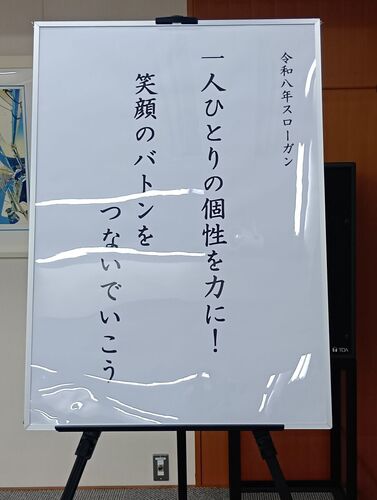 令和八年スローガン
一人ひとりの個性を力に！
笑顔のバトンを
つないでいこう
TOA